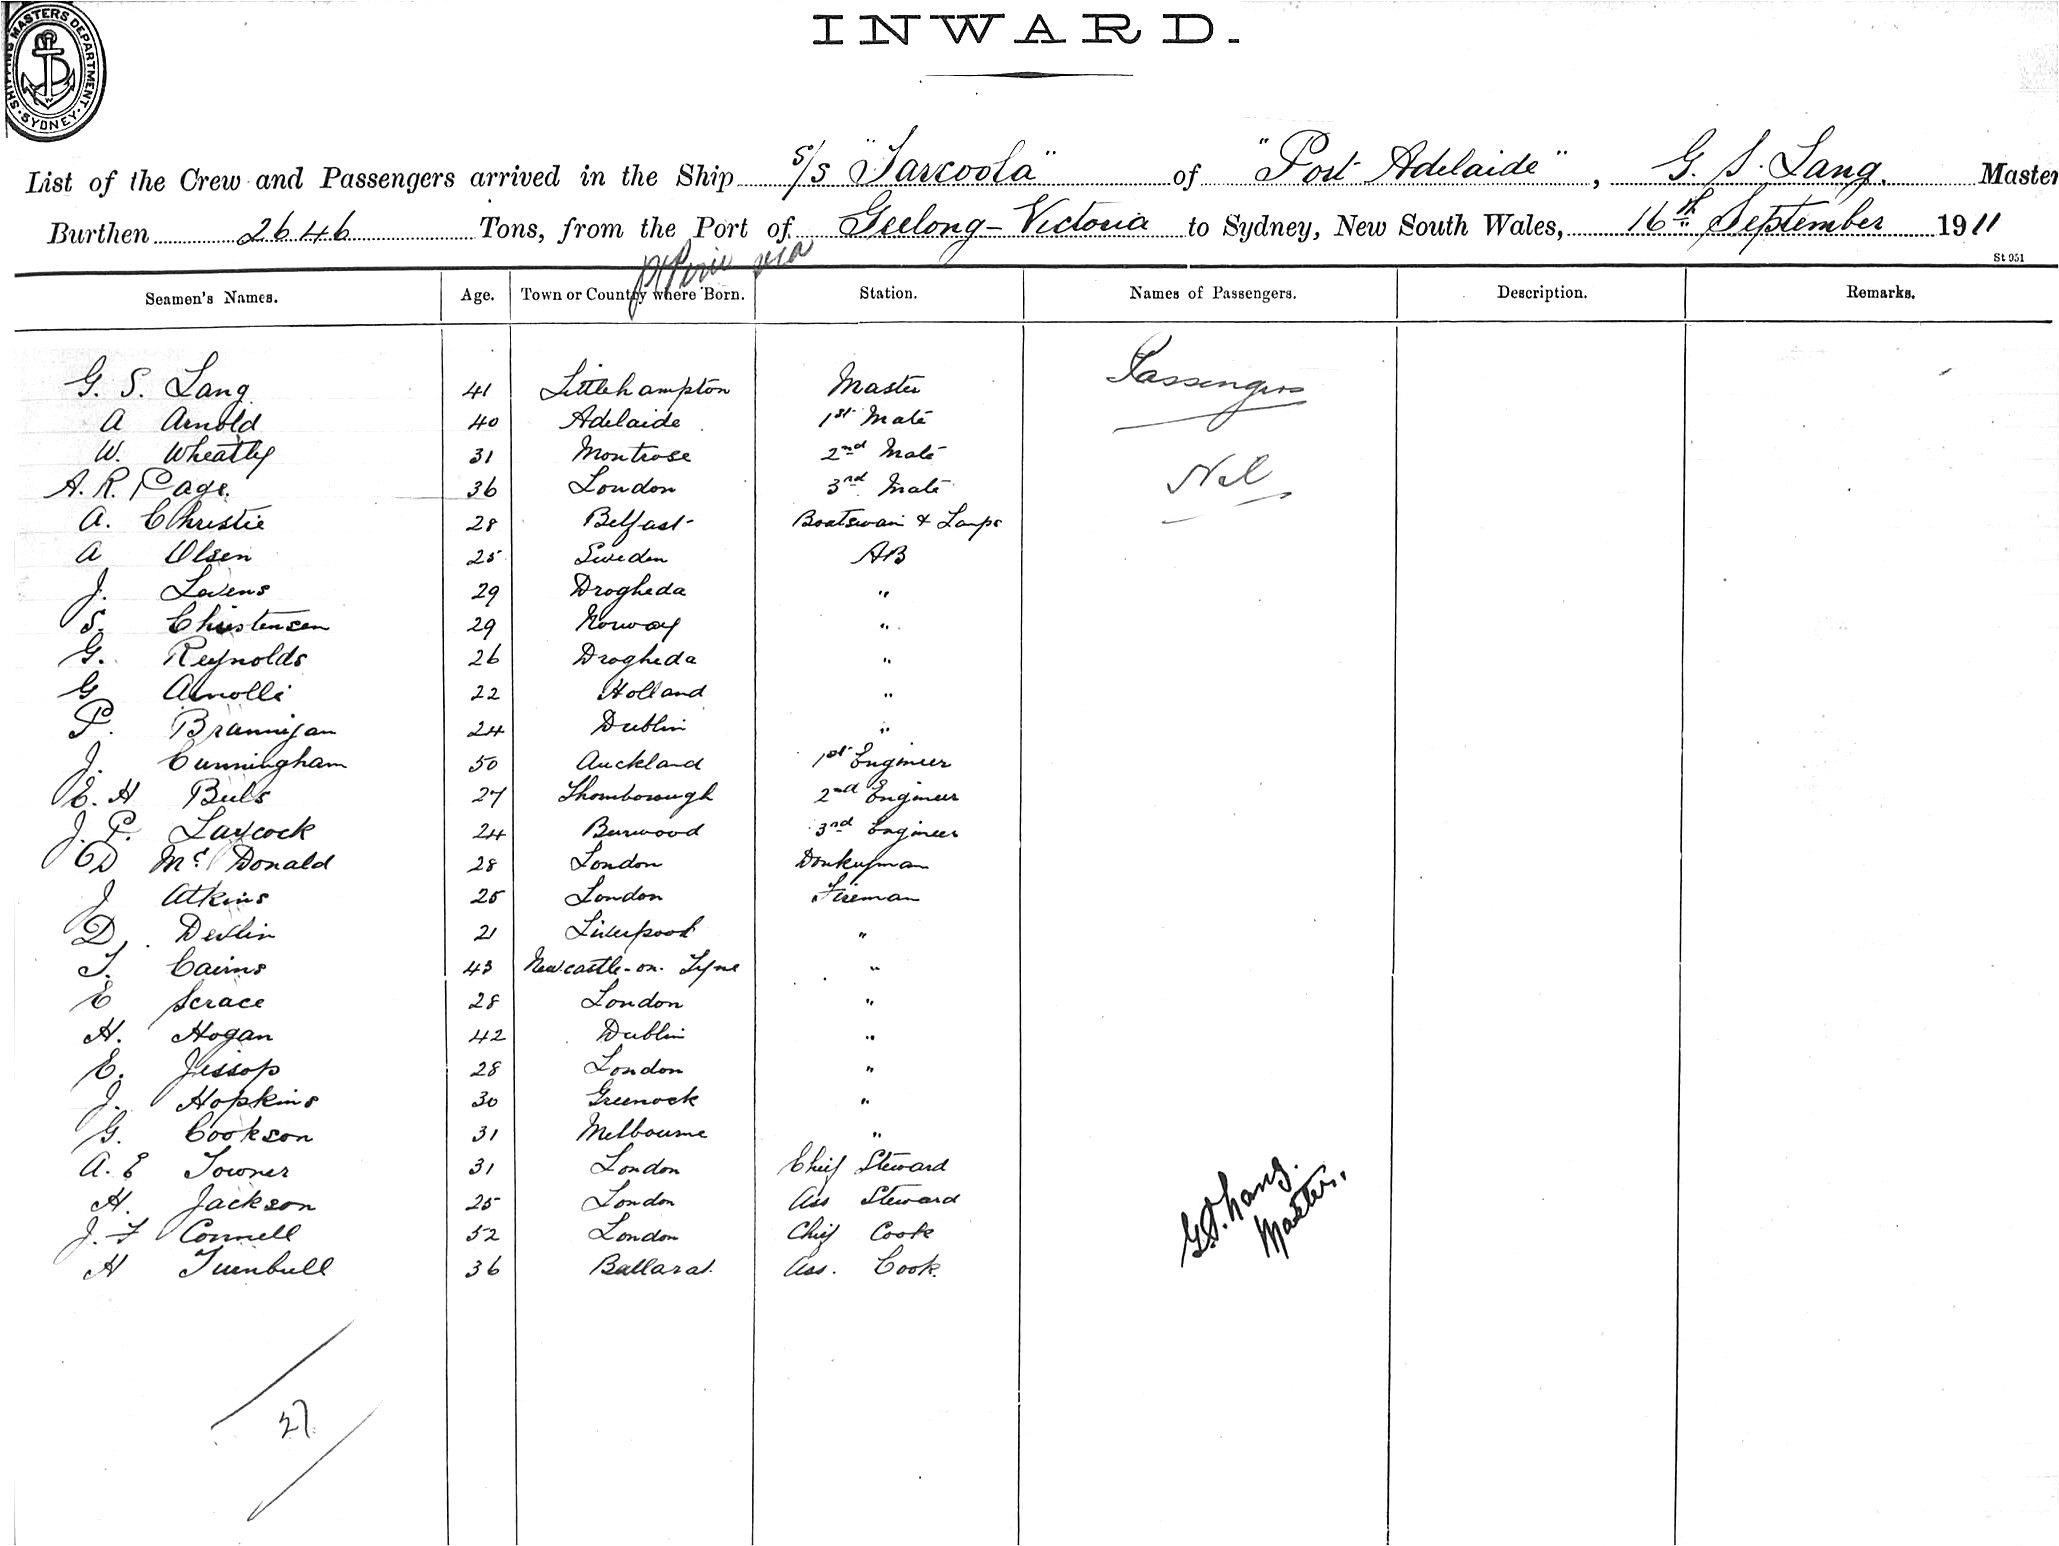 SHIPPING MASTERS DEPARTMENT. SYDNEY
INWARD.
List of the Crew and Passengers arrived in the Ship s/s "Tarcoola" of "Port Adelaide", G. S. Lang. Master
Burthen 2646 Tons, from the Port of Geelong - Victoria to Sydney, New South Wales, 16th September 1911
Pt Pirie
St 951
Seamen's Names. Age. Town or Country where Born. Station. Names of Passengers. Description. Remarks.
Passengers
G. S. Lang 41 Littlehampton Master
A Arnold 40 Adelaide 1st Mate
W. Wheatly 31 Montrose 2nd Mate
Nil
A. R. Page. 36 London 3rd Mate
A. Christie 28 Belfast Boatswain & Lamps
A Olsen 25 Sweden AB
J. Levens 29 Drogheda "
S. Christensen 29 Norway "
G. Reynolds 26 Drogheda "
G Arnolli 22 Holland "
P. Brannigan 24 Dublin "
J. Cunningham 50 Auckland 1st Engineer
E. H Buls 27 Thornborough 2nd Engineer
J. P. Laycock 24 Burwood 3rd Engineer
D McDonald 28 London Donkeyman
J Atkins 25 London Fireman
D. Devlin 21 Liverpool "
T. Cairns 43 Newcastle-on-Tyne "
E Scrace 28 London "
H. Hogan 42 Dublin "
E. Jessop 28 London "
J. Hopkins 30 Greenock "
G. Cookson 31 Melbourne "
A. E Towner 31 London Chief Steward
H. Jackson 25 London Ass Steward
J. F Connell 52 London Chief Cook
H Turnbull 36 Ballarat. Ass. Cook.
G.S. Lang.
Master.
27